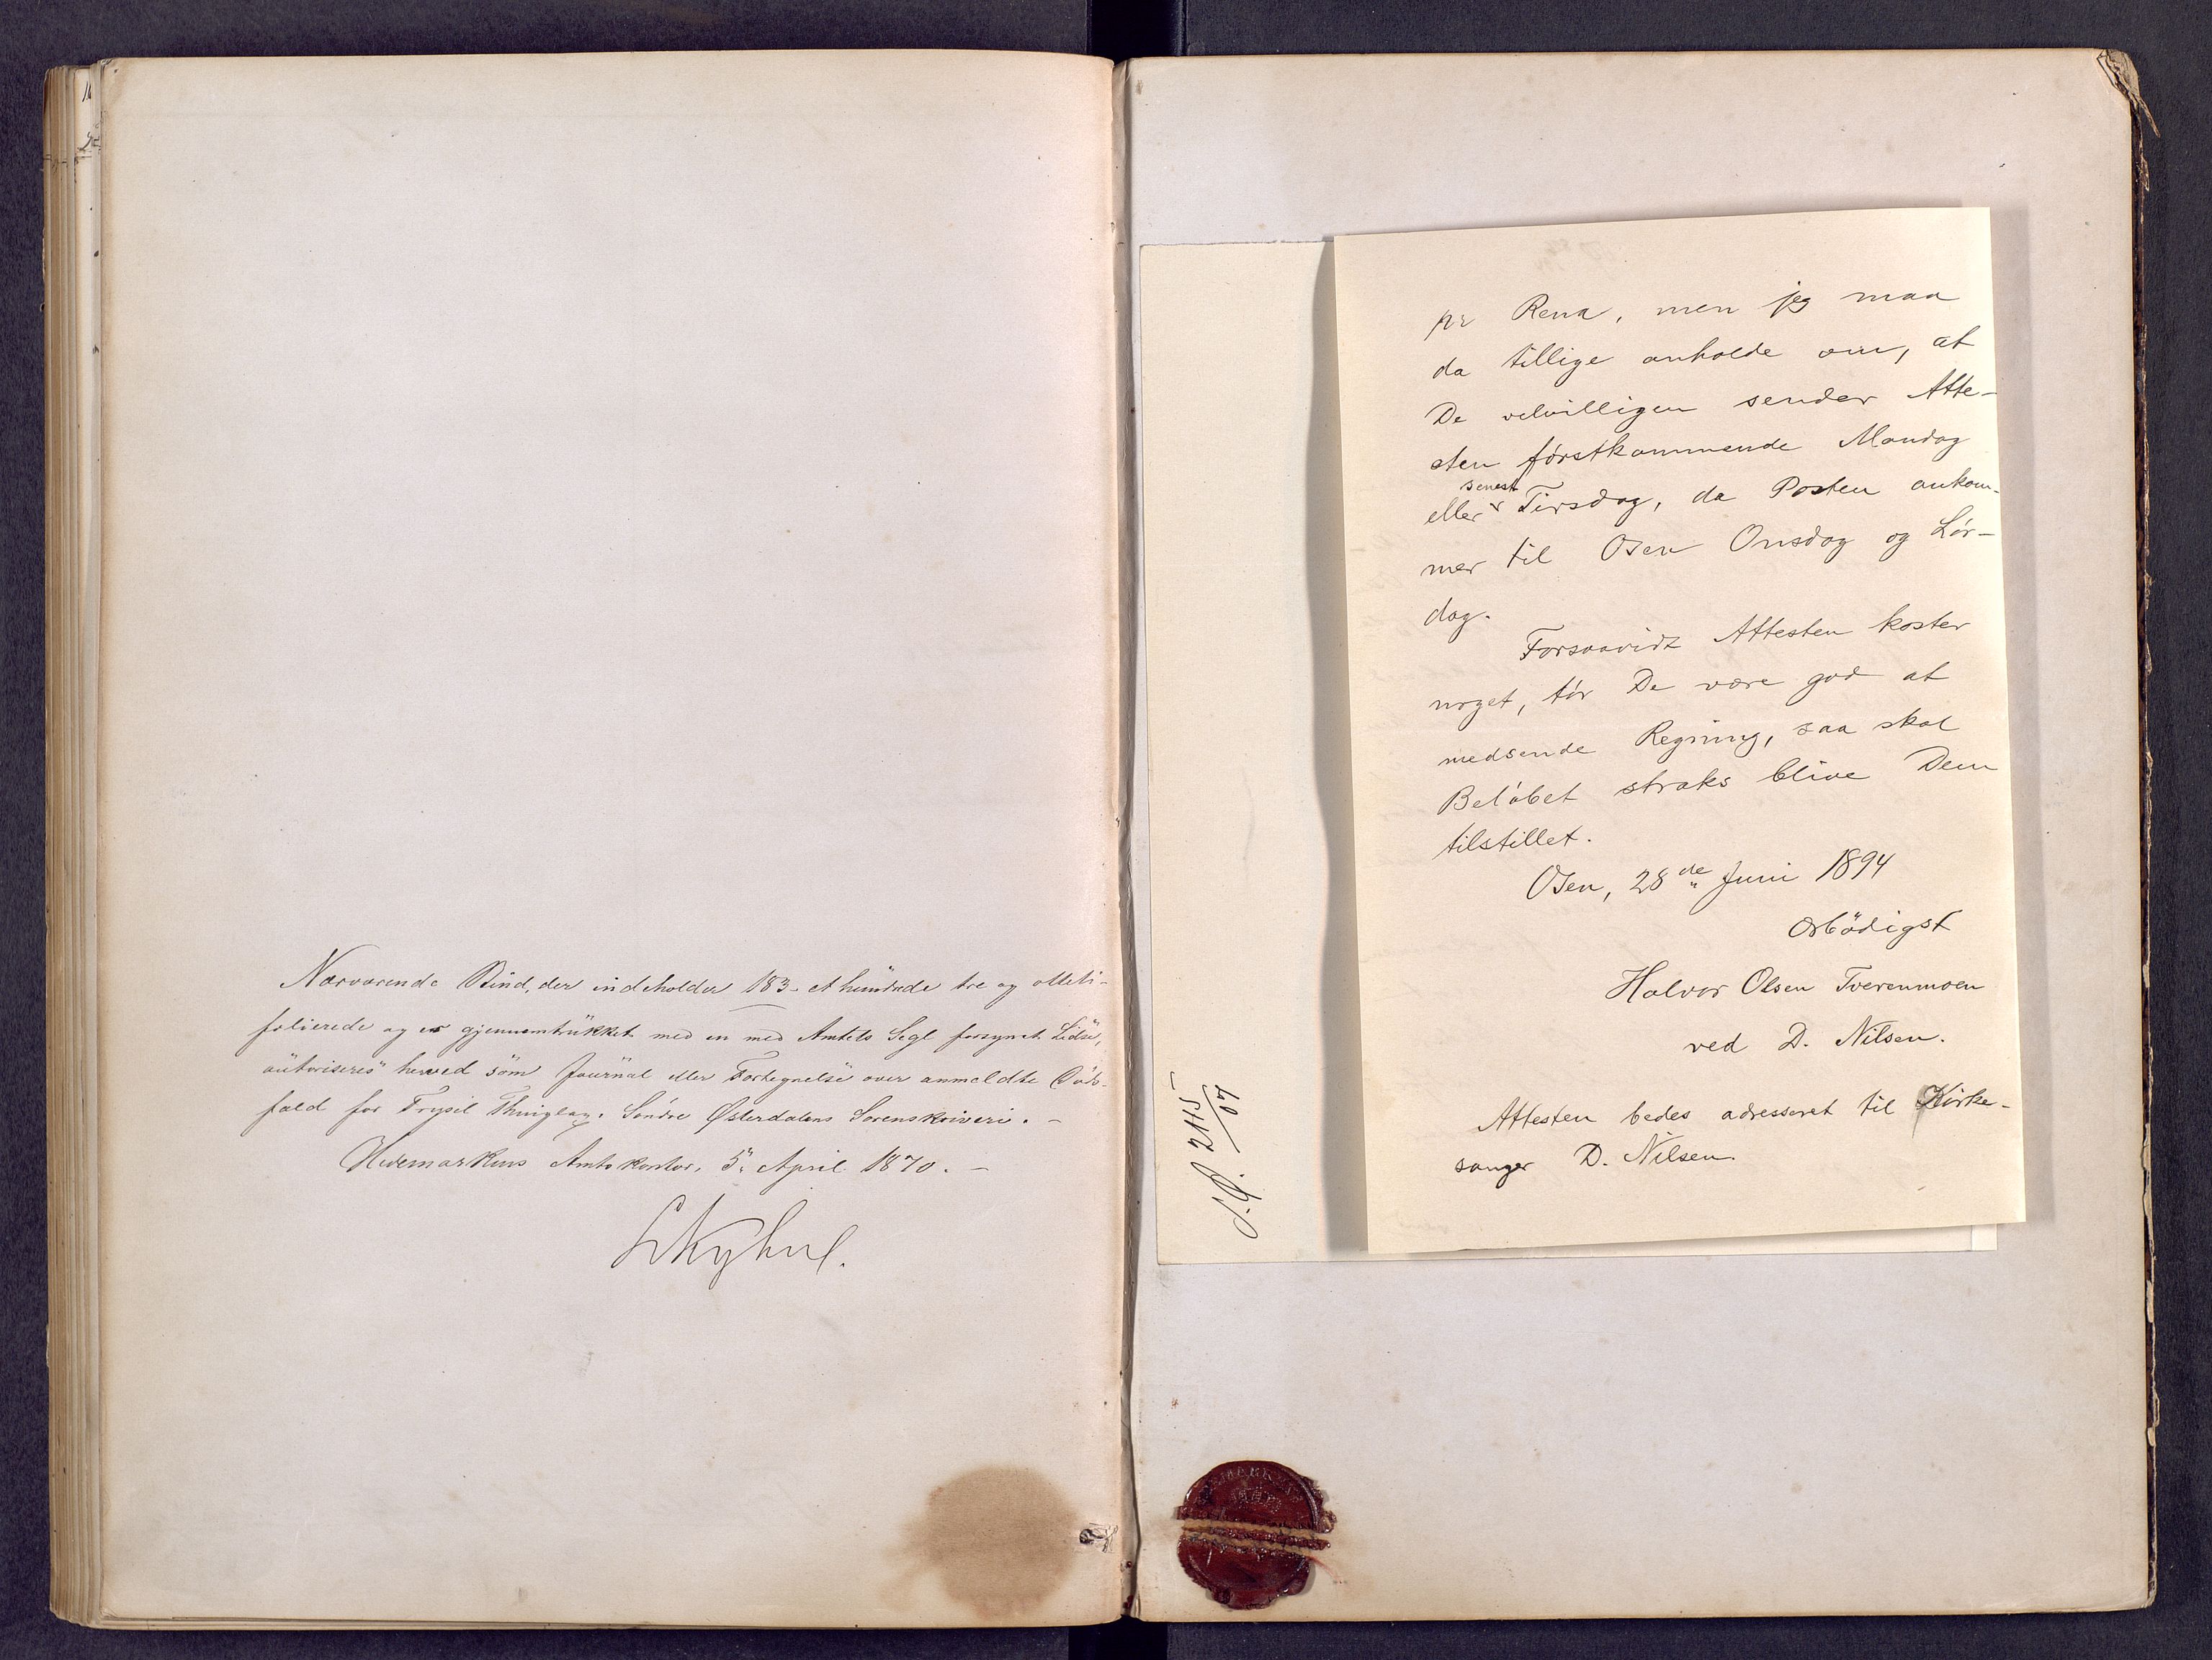 Nærværende Bind, der indeholder 183 - et hundrede tre og otteti -
folierede og er gjennemtrukket med en med Amtets Segl forsynet Lidse,
autoriseres herved som Journal eller Fortegnelse over anmeldte Døds-
fald for Trysil Thinglag, Søndre Østerdalens Sorenskriveri. -
Hedemarkens Amtskontor, 5. April 1870. -
pr Rena, men jeg maa
da tillige anholde om, at
De velvilligen sender Atte-
sten førstkommende Mandag
senest
eller Tirsdag, da Posten ankom-
mer til Osen Onsdag og Lør-
dag.
Forsaavidt Attesten koster
noget, tør De være god at
medsende Regning, saa skal
Beløbet straks blive Dem
tilstillet.
Osen, 28de Juni 1894
Ærbødigst
Halvor Olsen Tverenmoen
ved D. Nilsen.
Attesten bedes adresseret til Kirke-
sanger D. Nilsen.
J.P. 2115/07